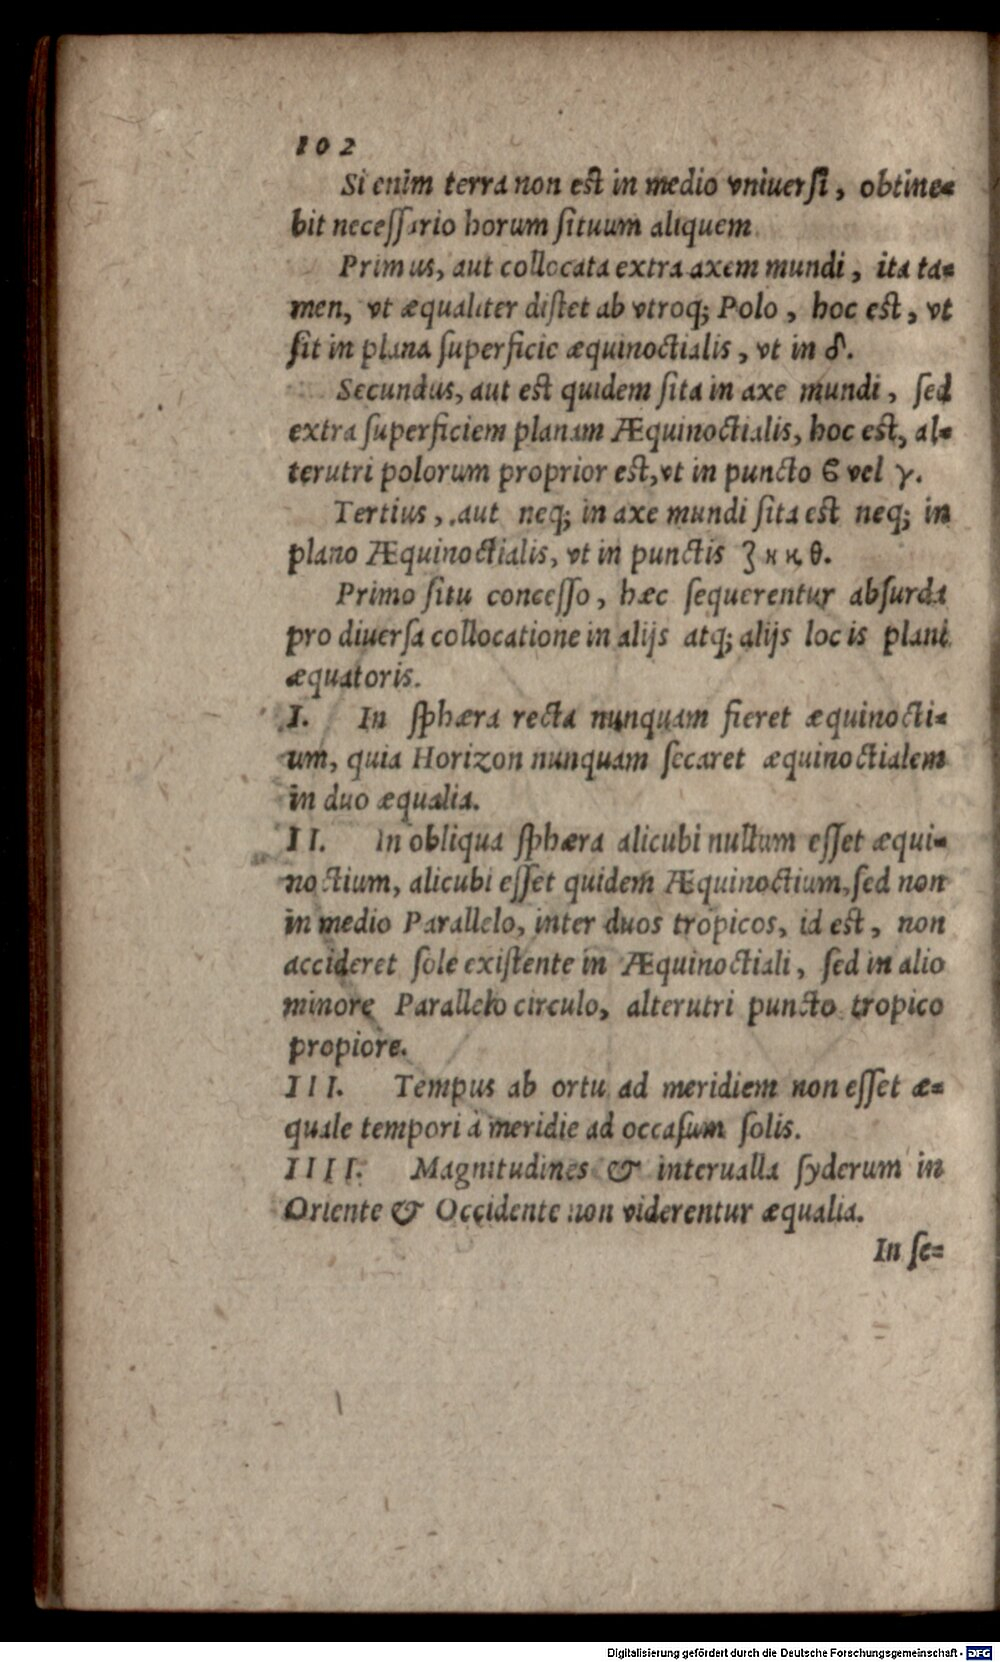 102
Si enim terra non est in medio vniuersi, obtine=
bit necessario horum situum aliquem.
Primus, aut collocata extra axem mundi, ita ta=
men, vt æqualiter distet ab vtroq; Polo, hoc est, vt
sit in plana superficie æquinoctialis, vt in δ.
Secundus, aut est quidem sita in axe mundi, sed
extra superficiem planam Æquinoctialis, hoc est, al=
terutri polorum proprior est, vt in puncto ϐ vel γ.
Tertius, aut neq; in axe mundi sita est neq; in
plano Æquinoctialis, vt in punctis ζ κ η θ.
Primo situ concesso, hæc sequerentur absurda
pro diuersa collocatione in alijs atq; alijs locis plani
æquatoris.
I. In sphæra recta nunquam fieret æquinocti=
um, quia Horizon nunquam secaret æquinoctialem
in duo æqualia.
II. In obliqua sphæra alicubi nullum esset æqui=
noctium, alicubi esset quidem Æquinoctium, sed non
in medio Parallelo, inter duos tropicos, id est, non
accideret sole existente in Æquinoctiali, sed in alio
minore Parallelo circulo, alterutri puncto tropico
propiore.
III. Tempus ab ortu ad meridiem non esset æ=
quale tempori à meridie ad occasum solis.
IIII. Magnitudines & interualla syderum in
Oriente & Occidente non viderentur æqualia.
In se=
Digitalisierung gefördert durch die Deutsche Forschungsgemeinschaft - DFG